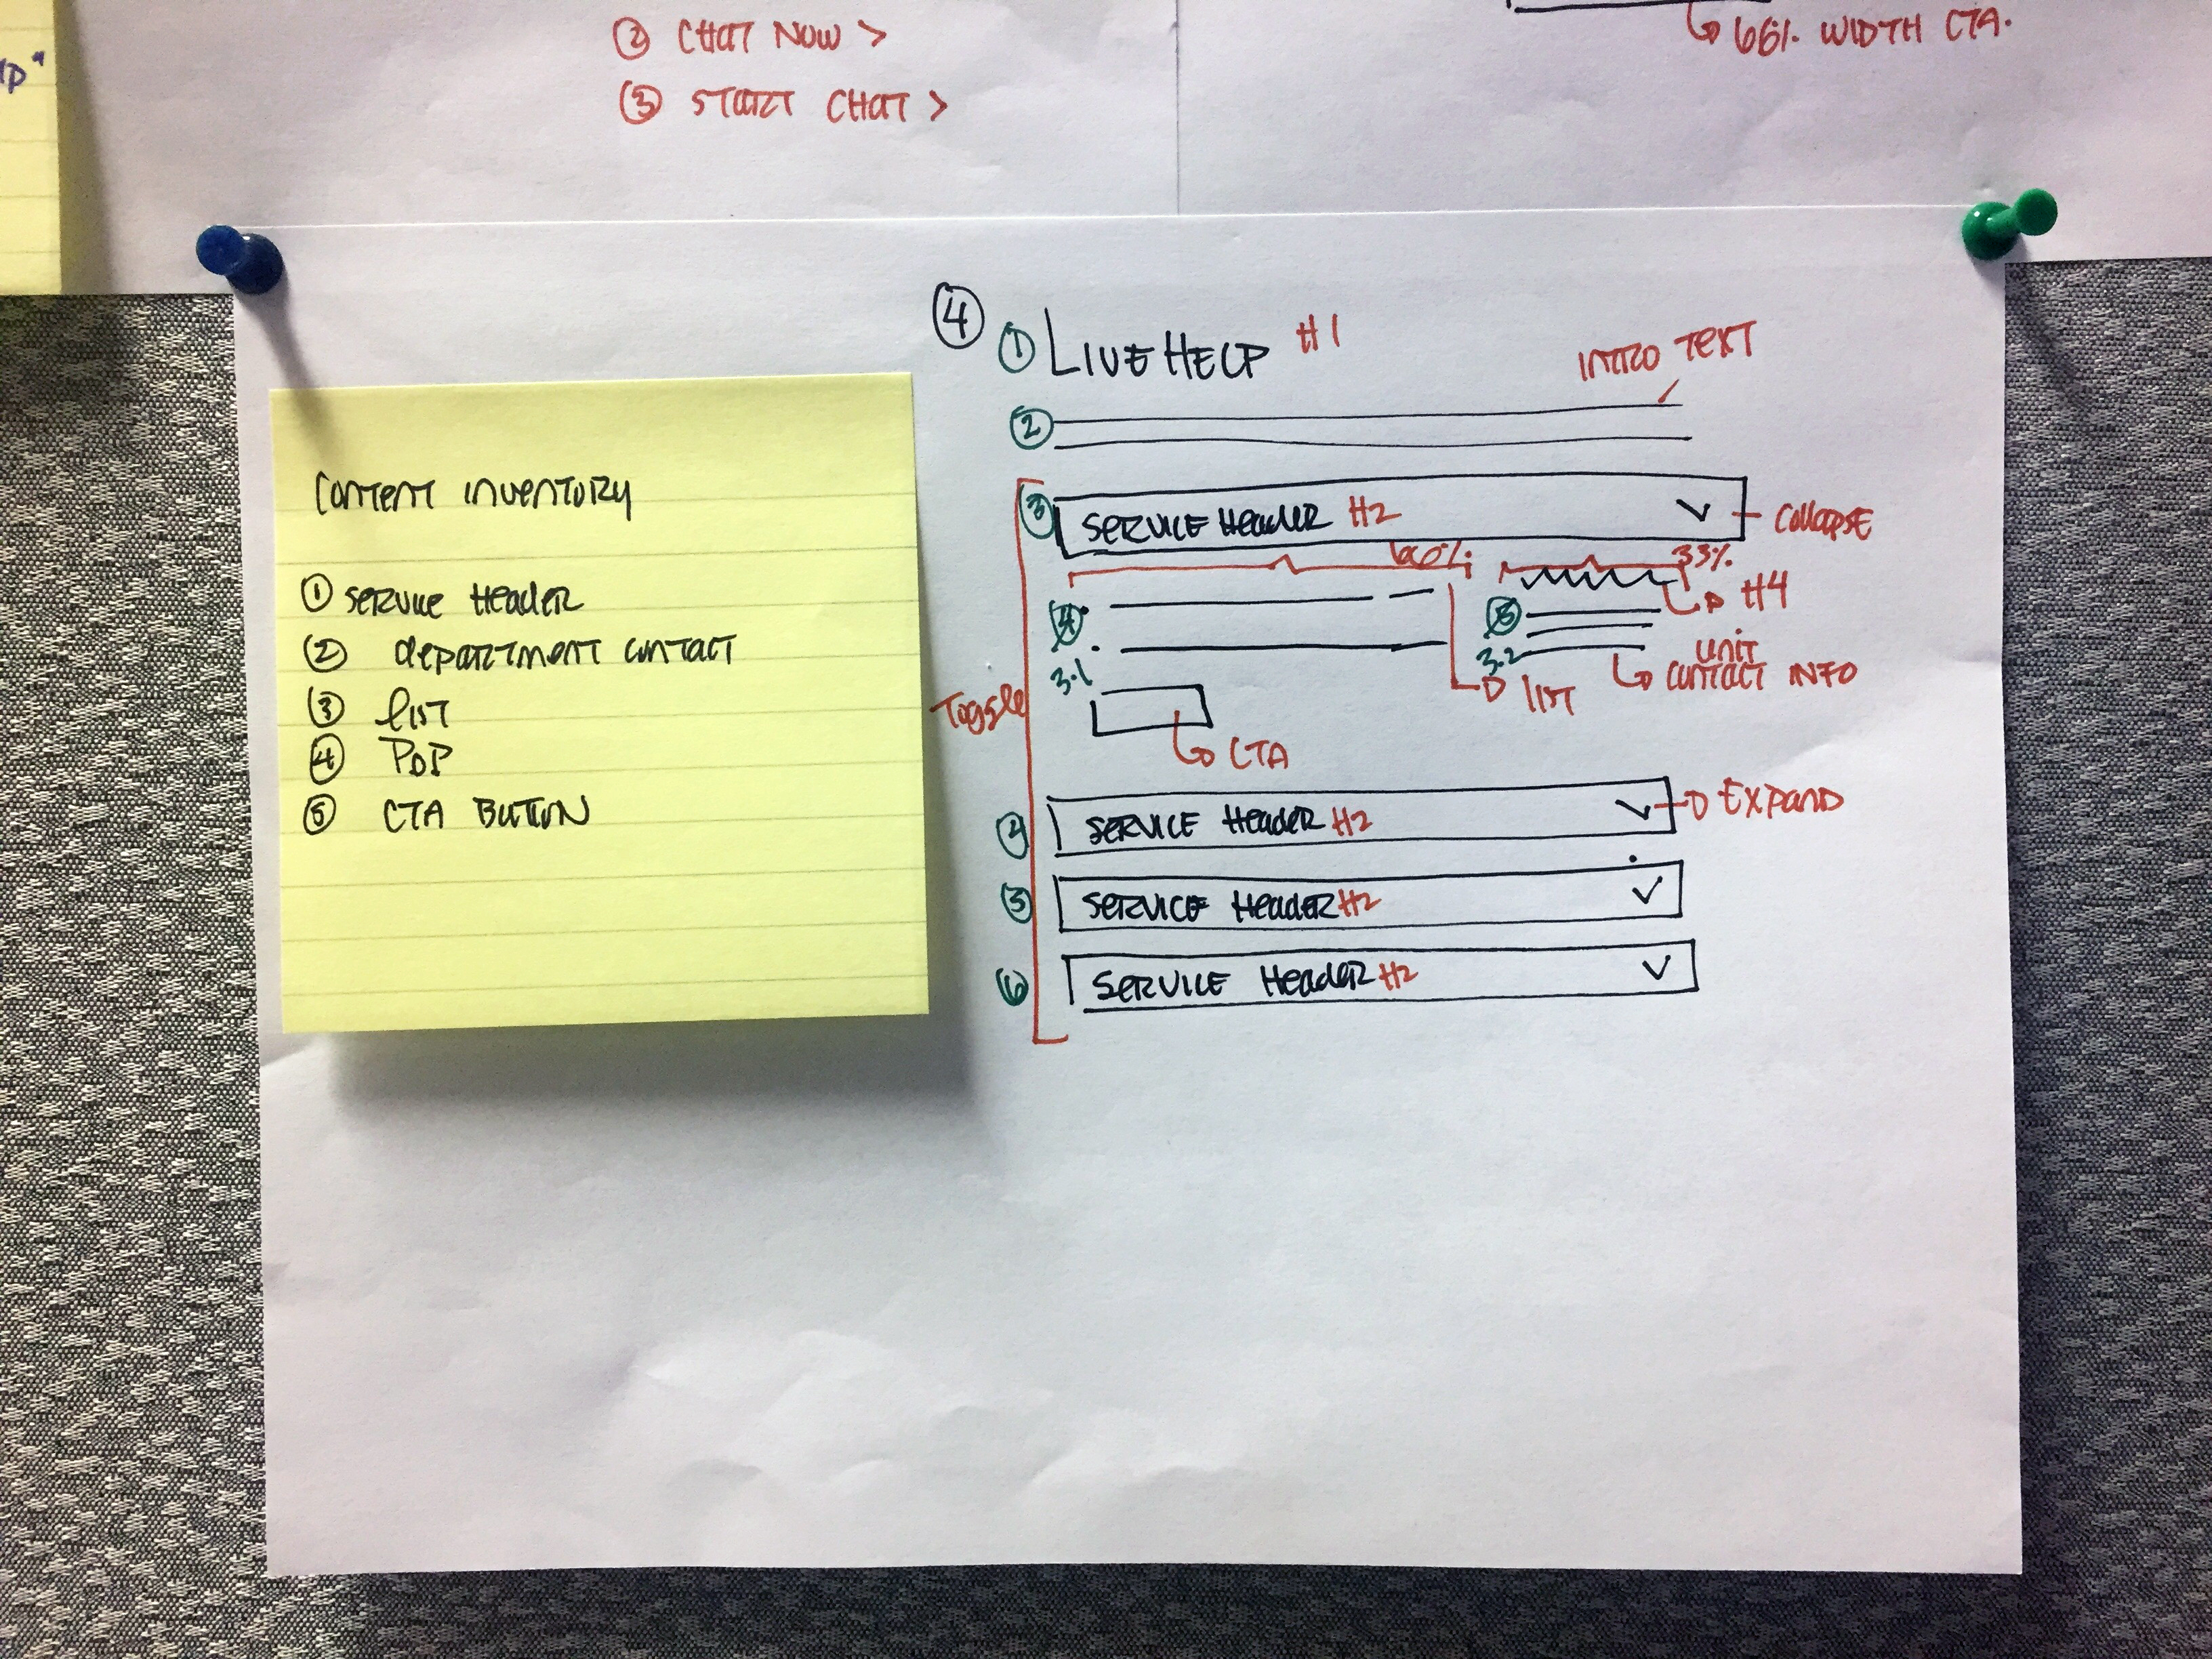 ② CHAT NOW >
③ START CHAT >
66% WIDTH CTA.
CONTENT INVENTORY
① SERVICE HEADER
② DEPARTMENT CONTACT
③ LIST
④ POP
⑤ CTA BUTTON
④
① LIVE HELP H1
INTRO TEXT
②
③ SERVICE HEADER H2
COLLAPSE
33%
H4
3.1
3.2
LIST
UNIT
CONTACT INFO
Toggle
CTA
④ SERVICE HEADER H2
EXPAND
⑤ SERVICE HEADER H2
⑥ SERVICE HEADER H2